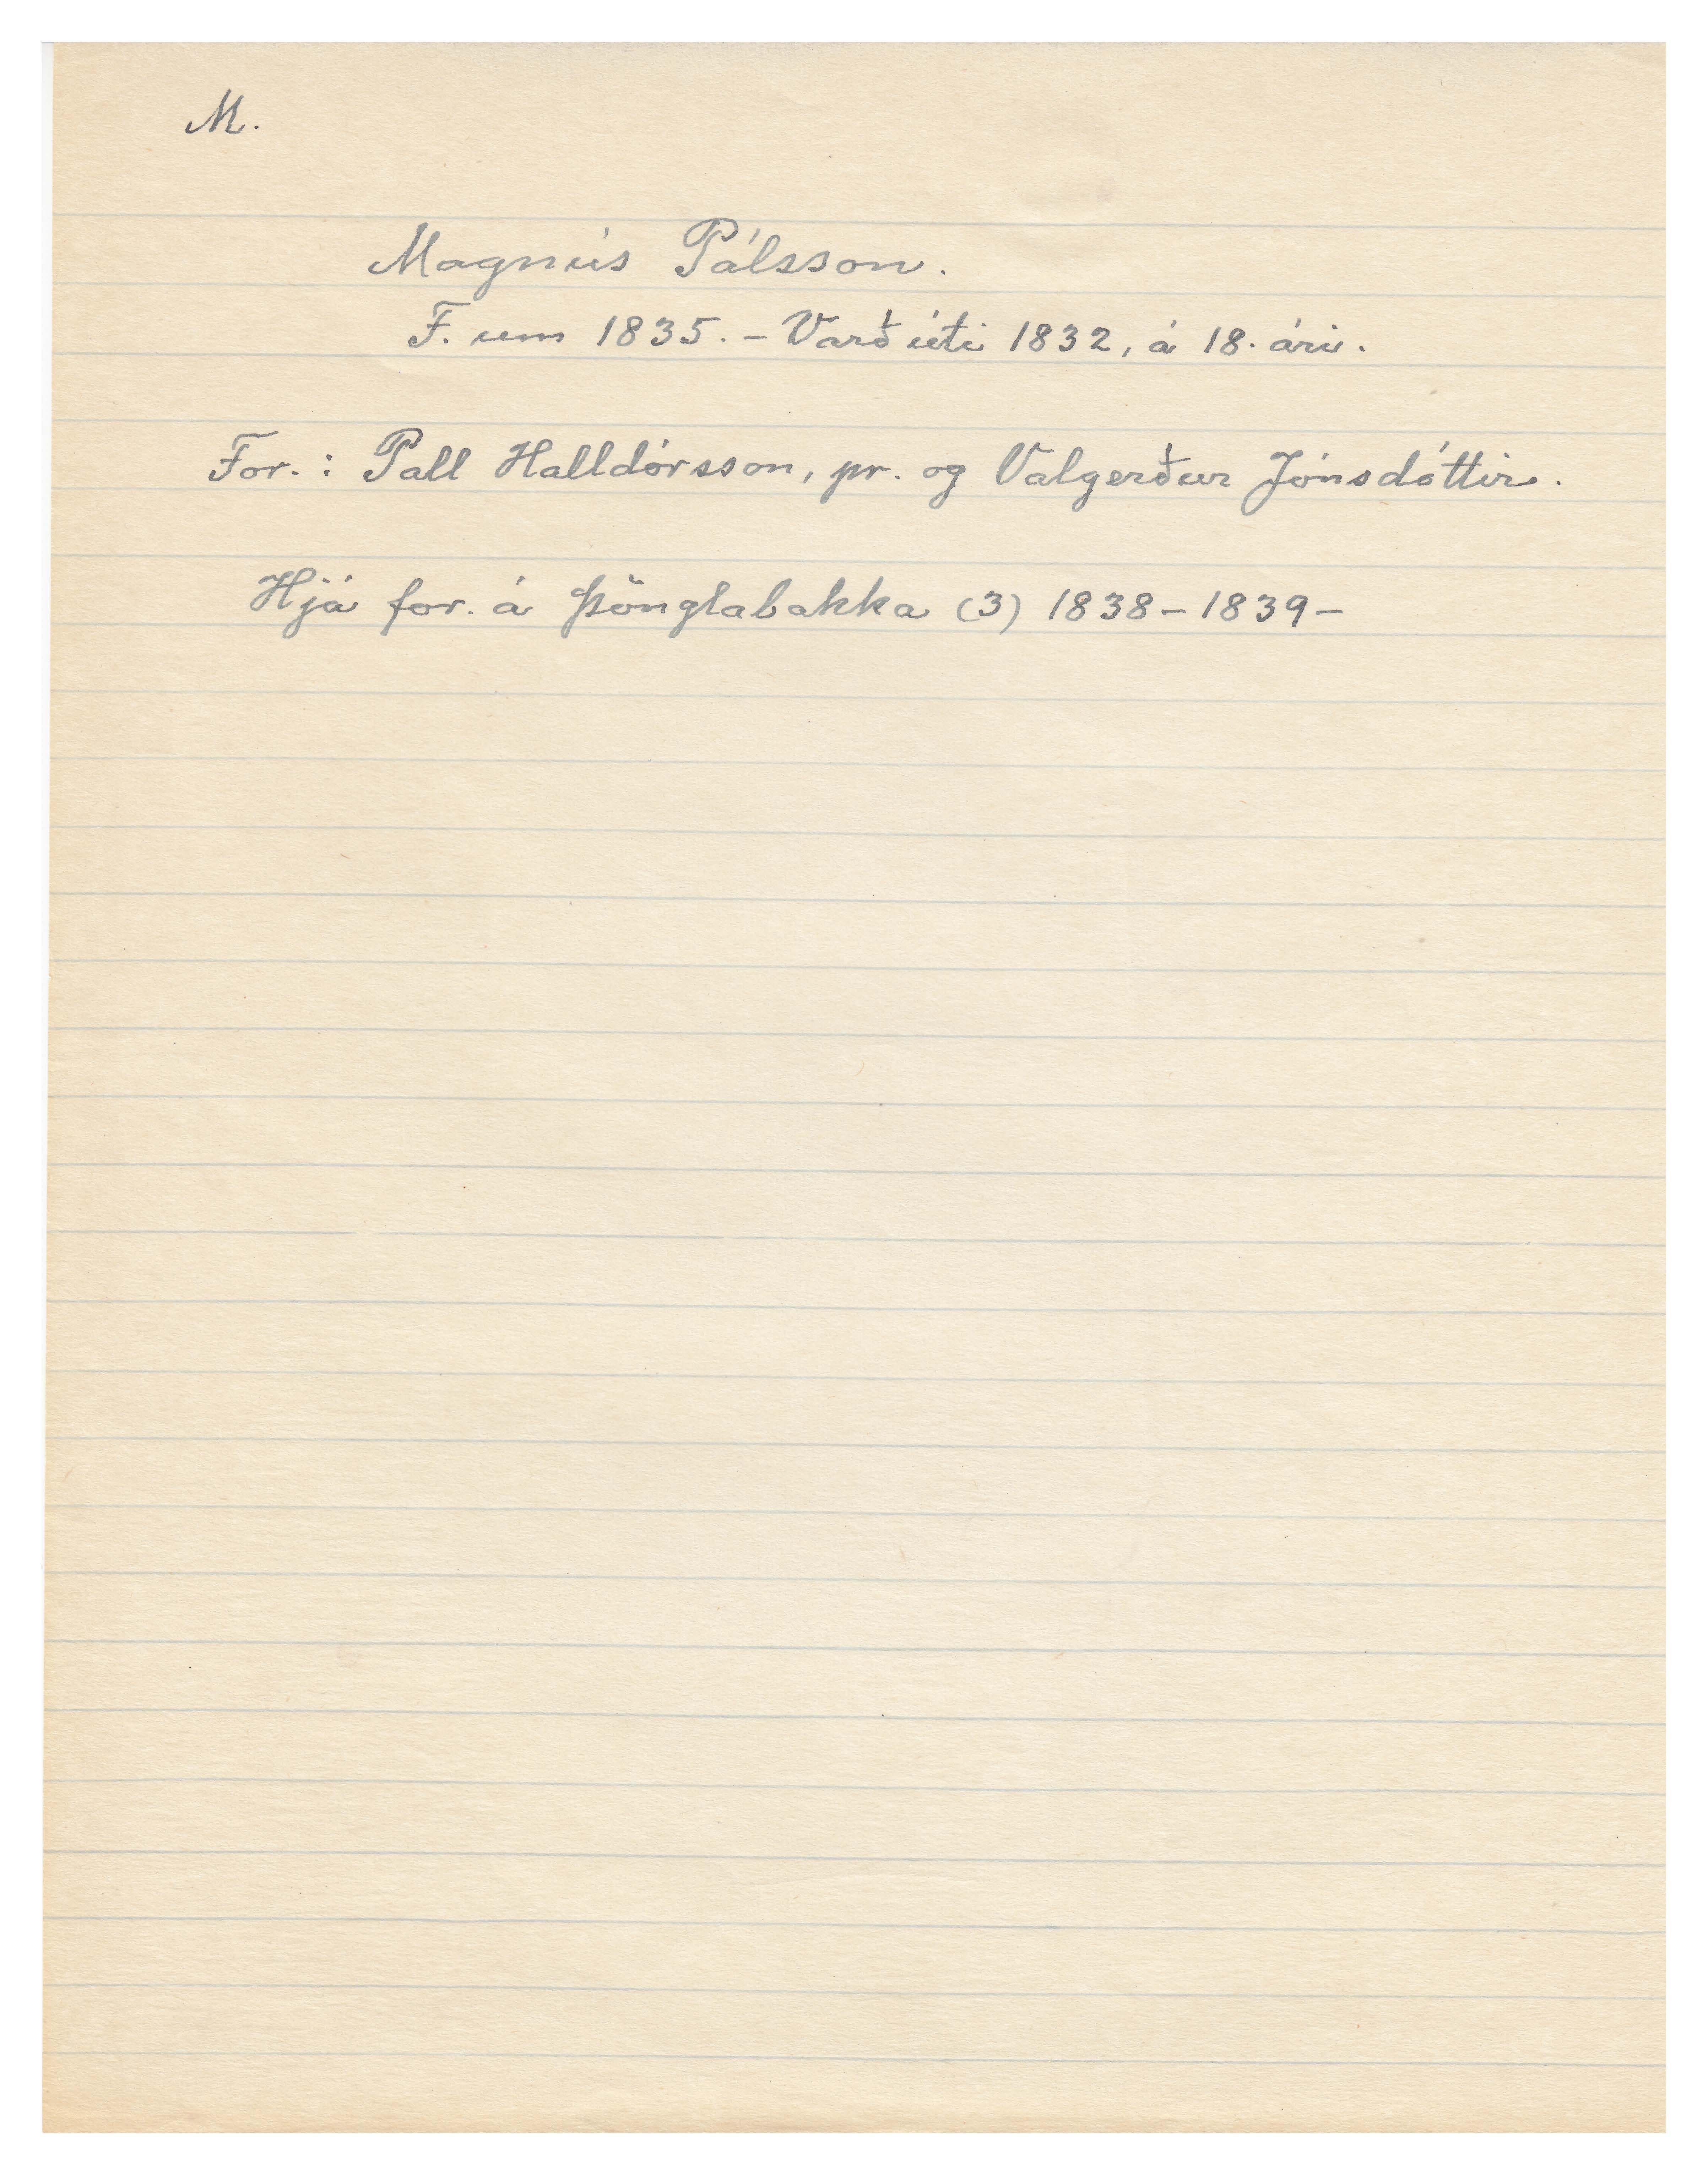 M.
Magnús Pálsson.
F. um 1835. - Varð úti 1832, á 18. ári.
For. : Pall Halldórsson, pr. og Valgerður Jónsdóttir.
Hjá for. á Þönglabakka (3) 1838 - 1839 -